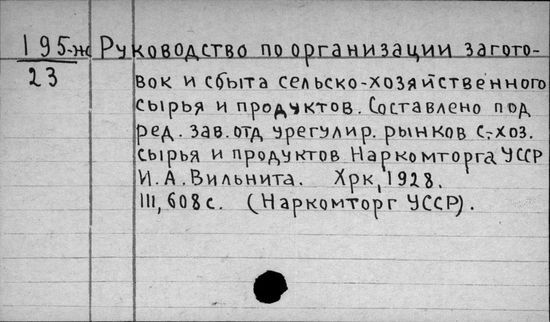 195-ж Руководство по организации загото-
23
вок и сбыта сельско-хозяйственного
сырья и продуктов. Составлено под
ред. зав. отд урегулир. рынков с.-хоз.
сырья и продуктов Наркомторга УССР
И. А. Вильнита. Хрк, 1928.
III, 608 с. (Наркомторг УССР).